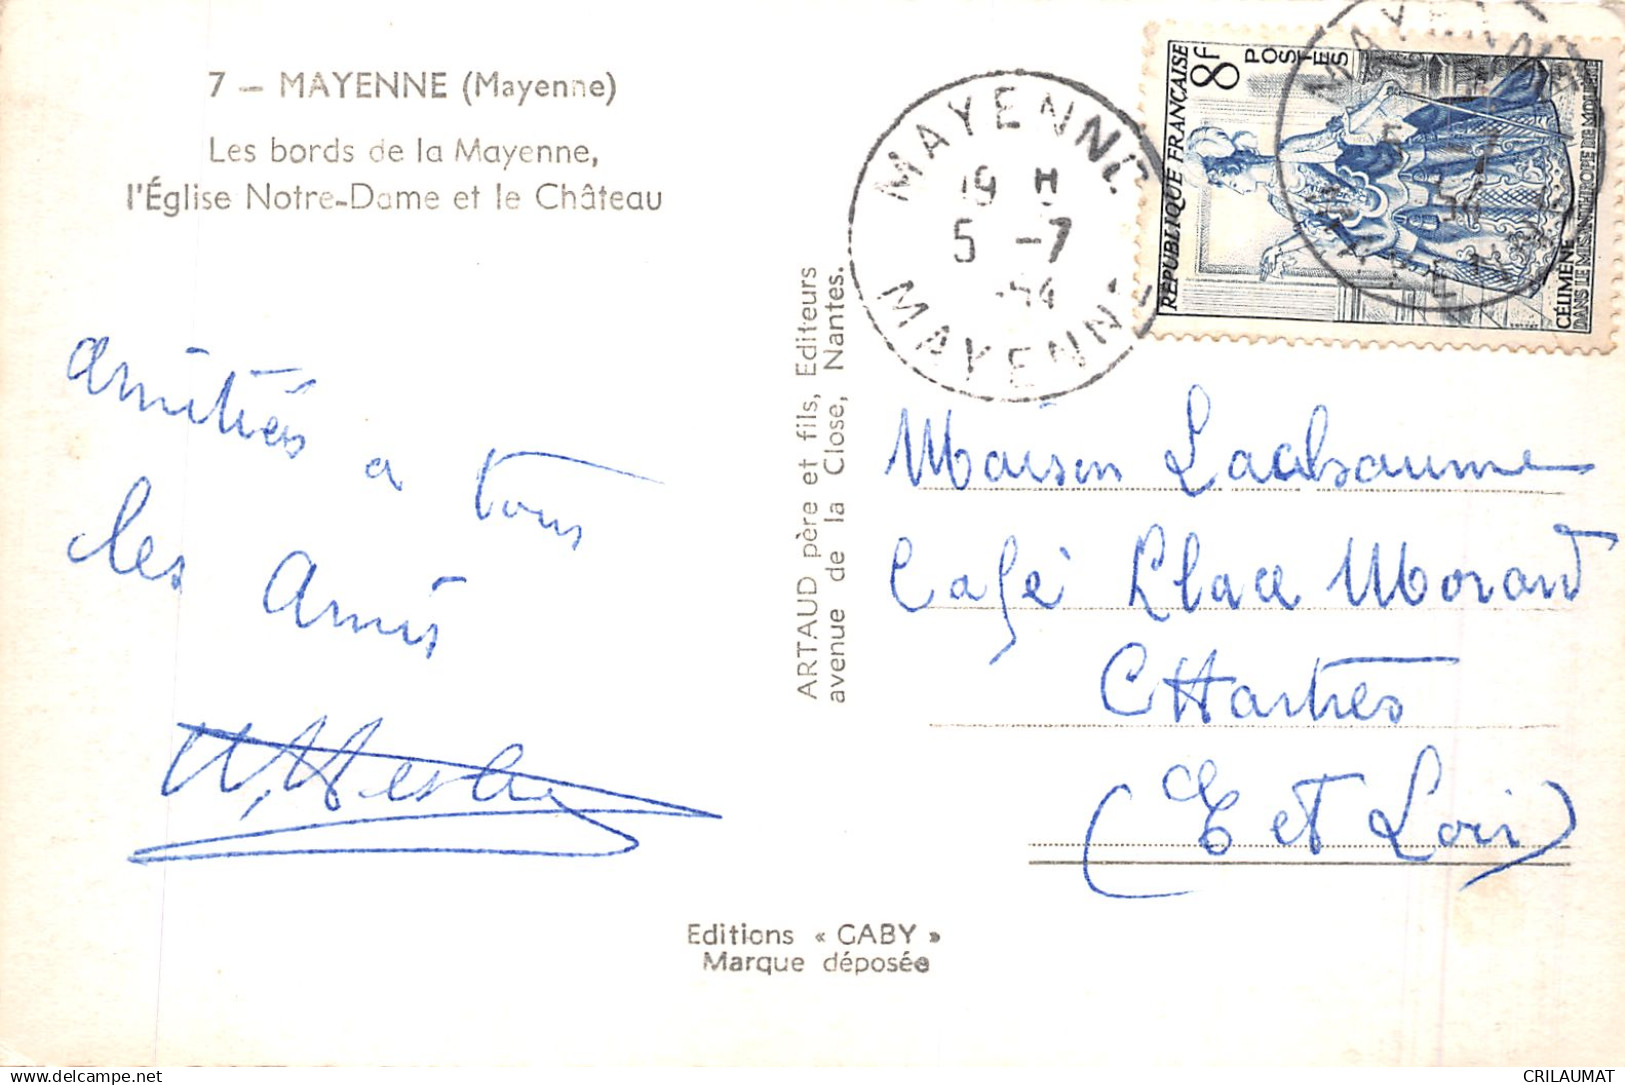 7 – MAYENNE (Mayenne)
Les bords de la Mayenne,
l'Église Notre-Dame et le Château
amitiés a tous
les Amis
ARTAUD père et fils, Editeurs
avenue de la Close, Nantes.
MAYENNE
19 H
5 -7
54
MAYENNE
RÉPUBLIQUE FRANÇAISE
8F
POSTES
CÉLIMÈNE
DANS LE MISANTHROPE DE MOLIÈRE
MAYENNE
5 -7
54
MAYENNE
Maison
Café Place Morard
CHartres
(E et Loir)
Editions « GABY »
Marque déposée
CRILAUMAT